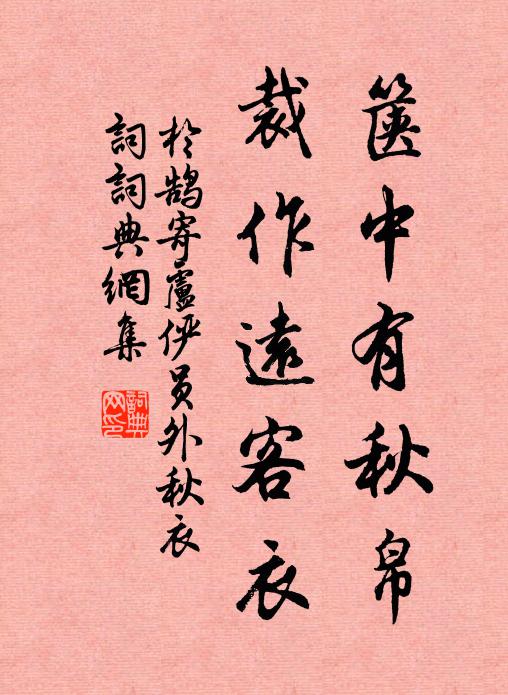 篋中有秋帛
裁作遠客衣
於鵠寄盧俨員外秋衣
詞詞典網集
詞典网印